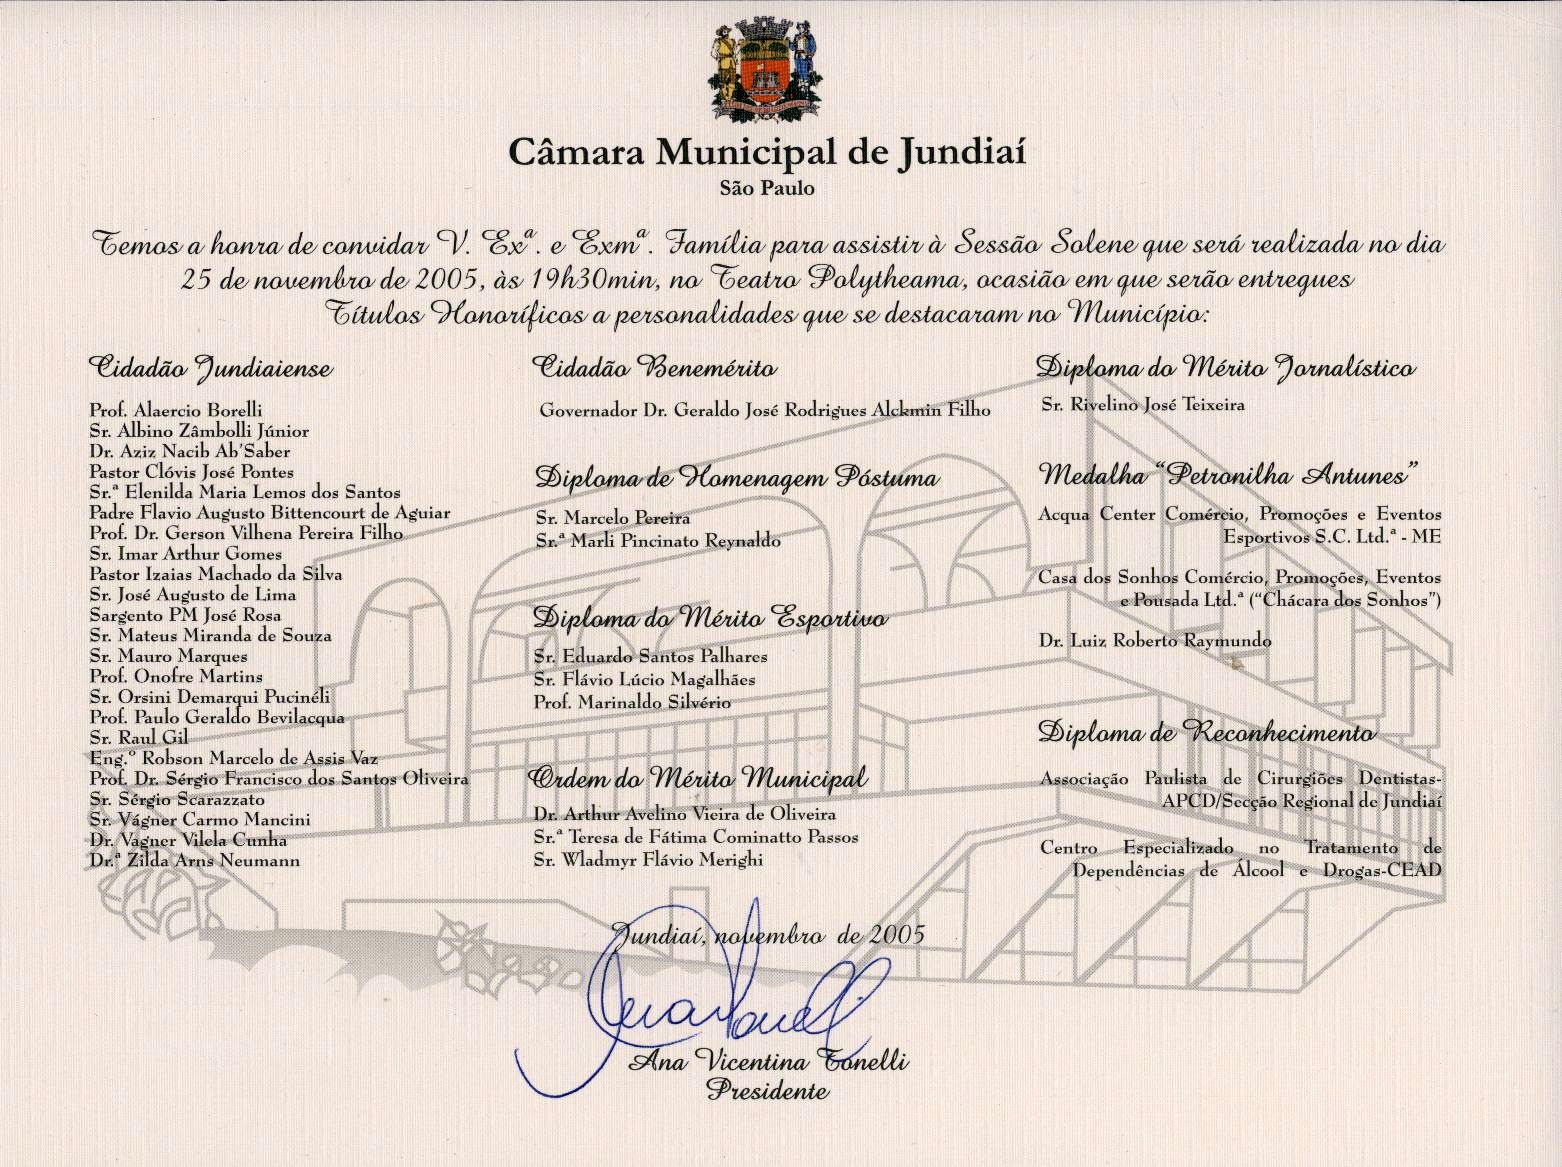 Câmara Municipal de Jundiaí
São Paulo
Temos a honra de convidar V. Exª. e Exmª. Família para assistir à Sessão Solene que será realizada no dia
25 de novembro de 2005, às 19h30min, no Teatro Polytheama, ocasião em que serão entregues
Títulos Honoríficos a personalidades que se destacaram no Município:
Cidadão Jundiaiense
Prof. Alaercio Borelli
Sr. Albino Zâmbolli Júnior
Dr. Aziz Nacib Ab'Saber
Pastor Clóvis José Pontes
Sr.ª Elenilda Maria Lemos dos Santos
Padre Flavio Augusto Bittencourt de Aguiar
Prof. Dr. Gerson Vilhena Pereira Filho
Sr. Imar Arthur Gomes
Pastor Izaias Machado da Silva
Sr. José Augusto de Lima
Sargento PM José Rosa
Sr. Mateus Miranda de Souza
Sr. Mauro Marques
Prof. Onofre Martins
Sr. Orsini Demarqui Pucinéli
Prof. Paulo Geraldo Bevilacqua
Sr. Raul Gil
Eng.º Robson Marcelo de Assis Vaz
Prof. Dr. Sérgio Francisco dos Santos Oliveira
Sr. Sérgio Scarazzato
Sr. Vágner Carmo Mancini
Dr. Vagner Vilela Cunha
Dr.ª Zilda Arns Neumann
Cidadão Benemérito
Governador Dr. Geraldo José Rodrigues Alckmin Filho
Diploma de Homenagem Póstuma
Sr. Marcelo Pereira
Sr.ª Marli Pincinato Reynaldo
Diploma do Mérito Esportivo
Sr. Eduardo Santos Palhares
Sr. Flávio Lúcio Magalhães
Prof. Marinaldo Silvério
Ordem do Mérito Municipal
Dr. Arthur Avelino Vieira de Oliveira
Sr.ª Teresa de Fátima Cominatto Passos
Sr. Wladmyr Flávio Merighi
Diploma do Mérito Jornalístico
Sr. Rivelino José Teixeira
Medalha "Petronilha Antunes"
Acqua Center Comércio, Promoções e Eventos
Esportivos S.C. Ltd.ª - ME
Casa dos Sonhos Comércio, Promoções, Eventos
e Pousada Ltd.ª ("Chácara dos Sonhos")
Dr. Luiz Roberto Raymundo
Diploma de Reconhecimento
Associação Paulista de Cirurgiões Dentistas-
APCD/Secção Regional de Jundiaí
Centro Especializado no Tratamento de
Dependências de Álcool e Drogas-CEAD
Jundiaí, novembro de 2005
Ana Vicentina Tonelli
Presidente